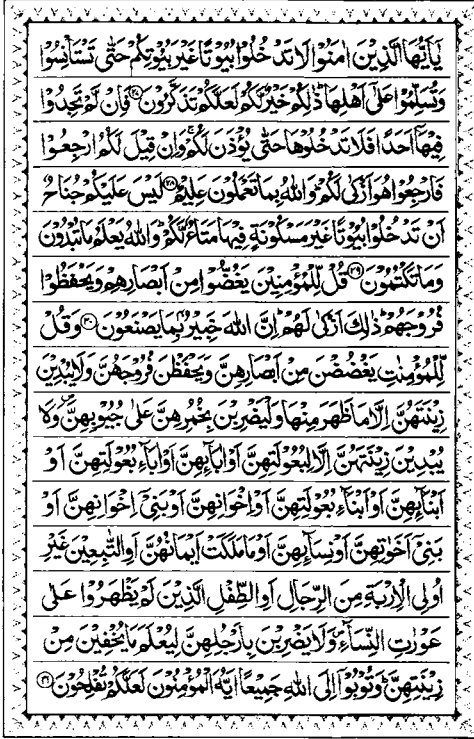 يٰٓاَيُّهَا الَّذِيْنَ اٰمَنُوْا لَا تَدْخُلُوْا بُيُوْتًا غَيْرَ بُيُوْتِكُمْ حَتّٰى تَسْتَاْنِسُوْا
وَتُسَلِّمُوْا عَلٰٓى اَهْلِهَا ؕ ذٰلِكُمْ خَيْرٌ لَّكُمْ لَعَلَّكُمْ تَذَكَّرُوْنَ ﴿۲۷﴾ فَاِنْ لَّمْ تَجِدُوْا
فِيْهَاۤ اَحَدًا فَلَا تَدْخُلُوْهَا حَتّٰى يُؤْذَنَ لَكُمْ ۚ وَاِنْ قِيْلَ لَكُمُ ارْجِعُوْا
فَارْجِعُوْا هُوَ اَزْكٰى لَكُمْ ؕ وَاللّٰهُ بِمَا تَعْمَلُوْنَ عَلِيْمٌ ﴿۲۸﴾ لَيْسَ عَلَيْكُمْ جُنَاحٌ
اَنْ تَدْخُلُوْا بُيُوْتًا غَيْرَ مَسْكُوْنَةٍ فِيْهَا مَتَاعٌ لَّكُمْ ؕ وَاللّٰهُ يَعْلَمُ مَا تُبْدُوْنَ
وَمَا تَكْتُمُوْنَ ﴿۲۹﴾ قُلْ لِّلْمُؤْمِنِيْنَ يَغُضُّوْا مِنْ اَبْصَارِهِمْ وَيَحْفَظُوْا
فُرُوْجَهُمْ ؕ ذٰلِكَ اَزْكٰى لَهُمْ ؕ اِنَّ اللّٰهَ خَبِيْرٌۢ بِمَا يَصْنَعُوْنَ ﴿۳۰﴾ وَقُلْ
لِّلْمُؤْمِنٰتِ يَغْضُضْنَ مِنْ اَبْصَارِهِنَّ وَيَحْفَظْنَ فُرُوْجَهُنَّ وَلَا يُبْدِيْنَ
زِيْنَتَهُنَّ اِلَّا مَا ظَهَرَ مِنْهَا وَلْيَضْرِبْنَ بِخُمُرِهِنَّ عَلٰى جُيُوْبِهِنَّ ۪ وَلَا
يُبْدِيْنَ زِيْنَتَهُنَّ اِلَّا لِبُعُوْلَتِهِنَّ اَوْ اٰبَآئِهِنَّ اَوْ اٰبَآءِ بُعُوْلَتِهِنَّ اَوْ
اَبْنَآئِهِنَّ اَوْ اَبْنَآءِ بُعُوْلَتِهِنَّ اَوْ اِخْوَانِهِنَّ اَوْ بَنِيْۤ اِخْوَانِهِنَّ اَوْ
بَنِيْۤ اَخَوٰتِهِنَّ اَوْ نِسَآئِهِنَّ اَوْ مَا مَلَكَتْ اَيْمَانُهُنَّ اَوِ التّٰبِعِيْنَ غَيْرِ
اُولِي الْاِرْبَةِ مِنَ الرِّجَالِ اَوِ الطِّفْلِ الَّذِيْنَ لَمْ يَظْهَرُوْا عَلٰى
عَوْرٰتِ النِّسَآءِ ۪ وَلَا يَضْرِبْنَ بِاَرْجُلِهِنَّ لِيُعْلَمَ مَا يُخْفِيْنَ مِنْ
زِيْنَتِهِنَّ ؕ وَتُوْبُوْۤا اِلَى اللّٰهِ جَمِيْعًا اَيُّهَ الْمُؤْمِنُوْنَ لَعَلَّكُمْ تُفْلِحُوْنَ ﴿۳۱﴾